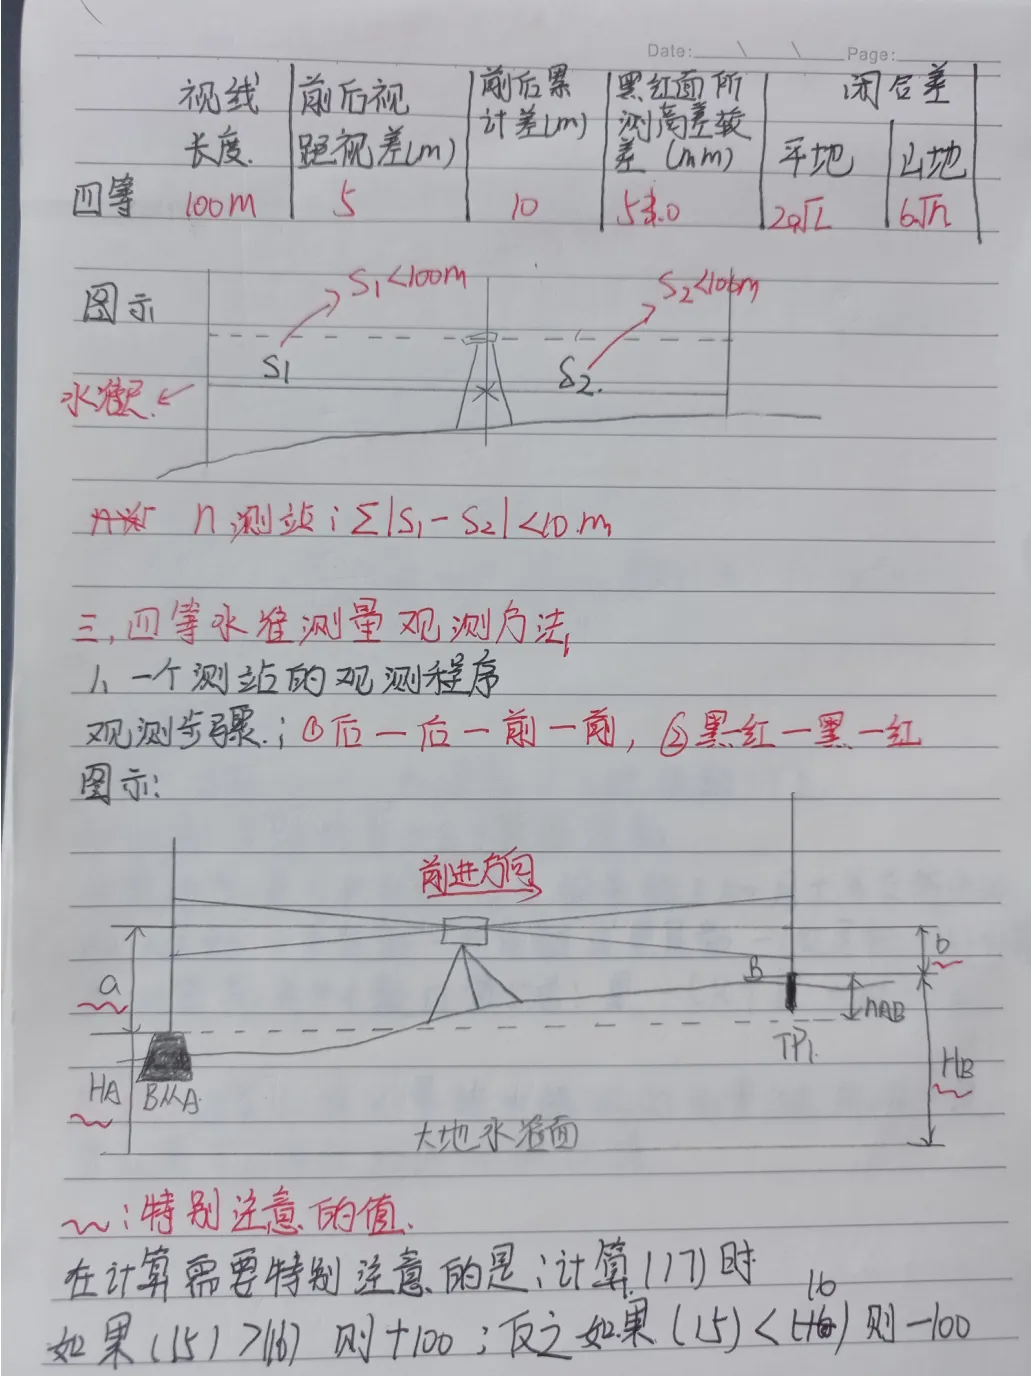 Date: \ \ Page:
视线长度
前后视距视差(m)
前后累计差(m)
黑红面所测高差较差(mm)
闭合差
平地
山地
四等 100m 5 10 5.0 20√L 6√n
图示
S₁<100m
S₂<100m
S₁
S₂.
水准尺
n测站:Σ|S₁-S₂|<10m
三,四等水准测量观测方法,
1、一个测站的观测程序
观测步骤:①后一后一前一前,②黑一红一黑一红
图示:
前进方向
a
b
B
hAB
TP1.
HA
BMA.
HB
大地水准面
~:特别注意的值.
在计算需要特别注意的是:计算(17)时
如果(15)>(16)则+100;反之如果(15)<(16)则-100